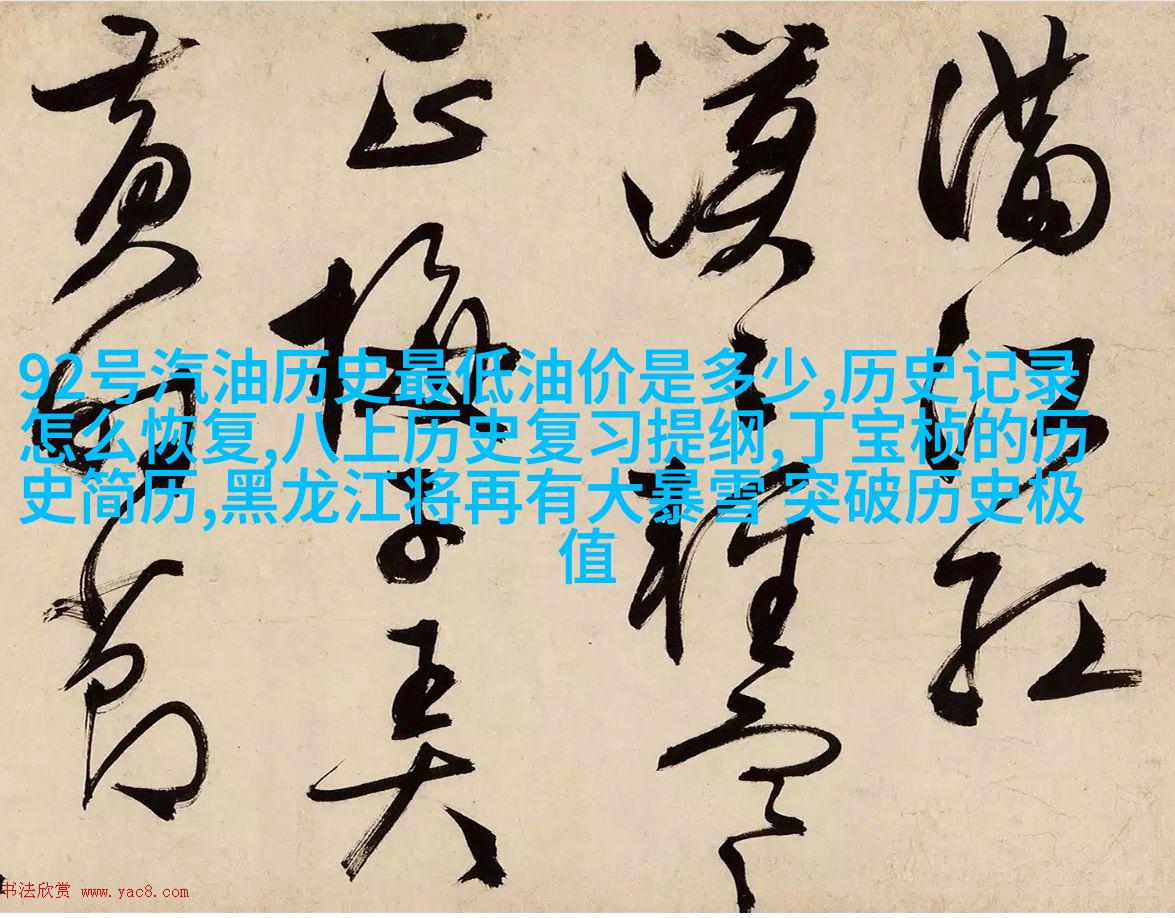 滿江紅
漠〻輕陰
正梅子弄
黃時節
92号汽油历史最低油价是多少,历史记录
怎么恢复,八上历史复习提纲,丁宝桢的历
史简历,黑龙江将再有大暴雪 突破历史极
值
书法欣赏 www.yac8.com